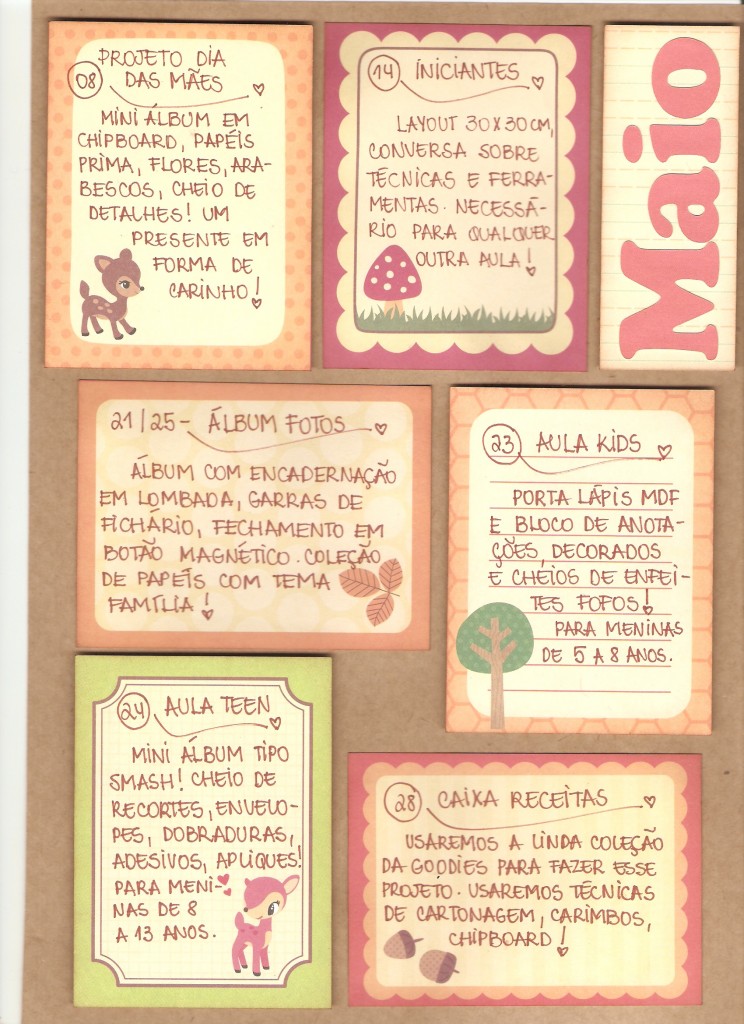 PROJETO DIA
08 DAS MÃES
MINI ÁLBUM EM
CHIPBOARD, PAPÉIS
PRIMA, FLORES, ARA-
BESCOS, CHEIO DE
DETALHES! UM
PRESENTE EM
FORMA DE
CARINHO!
14 INICIANTES
LAYOUT 30X30CM,
CONVERSA SOBRE
TÉCNICAS E FERRA-
MENTAS. NECESSÁ-
RIO PARA QUALQUER
OUTRA AULA!
Maio
21/25- ÁLBUM FOTOS
ÁLBUM COM ENCADERNAÇÃO
EM LOMBADA, GARRAS DE
FICHÁRIO, FECHAMENTO EM
BOTÃO MAGNÉTICO. COLEÇÃO
DE PAPÉIS COM TEMA
FAMÍLIA!
23 AULA KIDS
PORTA LÁPIS MDF
E BLOCO DE ANOTA-
ÇÕES, DECORADOS
E CHEIOS DE ENFEI-
TES FOFOS!
PARA MENINAS
DE 5 A 8 ANOS.
24 AULA TEEN
MINI ÁLBUM TIPO
SMASH! CHEIO DE
RECORTES, ENVELO-
PES, DOBRADURAS,
ADESIVOS, APLIQUES!
PARA MENI-
NAS DE 8
A 13 ANOS.
28 CAIXA RECEITAS
USAREMOS A LINDA COLEÇÃO
DA GOODIES PARA FAZER ESSE
PROJETO. USAREMOS TÉCNICAS
DE CARTONAGEM, CARIMBOS,
CHIPBOARD!